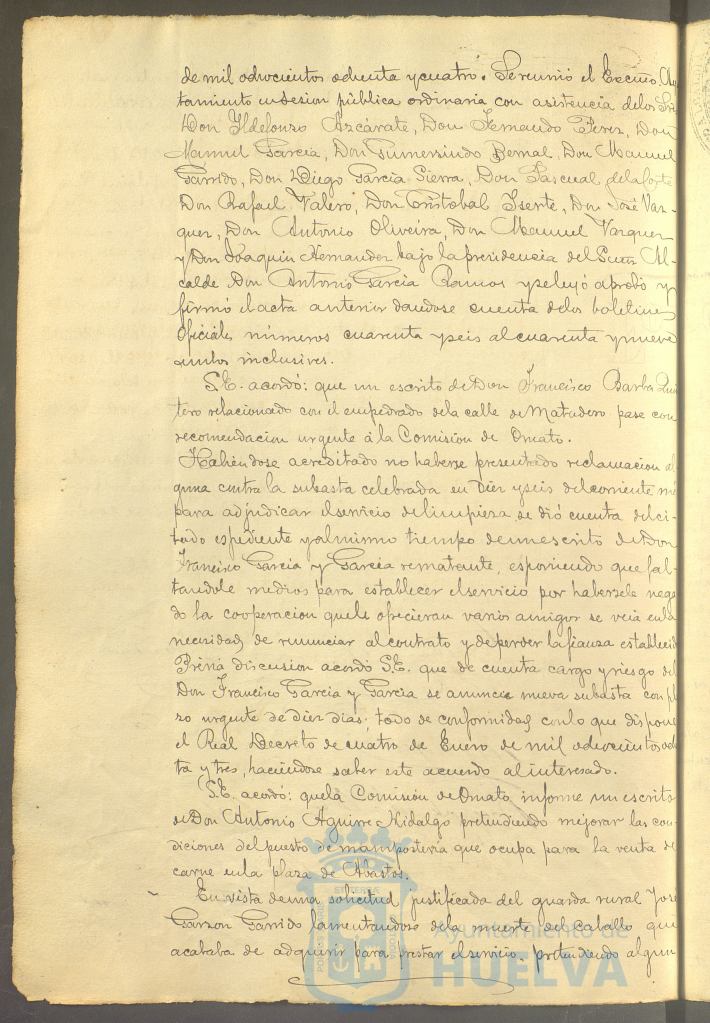 de mil ochocientos ochenta y cuatro. Se reunió el Excmo. Ayun
tamiento en sesion pública ordinaria con asistencia de los Sres
Don Yldefonso Azcárate, Don Fernando Perez, Don
Manuel Garcia, Don Gumersindo Bernal, Don Manuel
Garrido, Don Diego Garcia Sierra, Don Pascual de la Corte
Don Rafael Valero, Don Cristobal Yserte, Don José Vaz-
quez, Don Antonio Oliveira, Don Manuel Vazquez
y Don Joaquin Hernandez bajo la presidencia del Al-
calde Don Antonio Garcia Ramos y se leyó aprobó y
firmó el acta anterior dandose cuenta de los boletines
oficiales números cuarenta y seis al cuarenta y nueve
ambos inclusives.
S.E. acordó: que un escrito de Don Francisco Barba Quin
tero relacionado con el empedrado de la calle de Matadero pase con
recomendacion urgente á la Comision de Ornato.
Habiéndose acreditado no haberse presentado reclamacion al
guna contra la subasta celebrada en diez y seis del corriente mes
para adjudicar el servicio de limpieza, se dió cuenta del ci-
tado espediente y al mismo tiempo de un escrito de Don
Francisco Garcia y Garcia rematante, esponiendo que fal-
tandole medios para establecer el servicio por habersele nega
do la cooperacion que le ofrecieran varios amigos se veia en la
necesidad de renunciar al contrato y de perder la fianza establecid
Prévia discusion acordó S.E. que de cuenta cargo y riesgo del
Don Francisco Garcia y Garcia se anuncie nueva subasta con pla
zo urgente de diez dias, todo de conformidad con lo que dispone
el Real Decreto de cuatro de Enero de mil ochocientos ochen
ta y tres, haciéndose saber este acuerdo al interesado.
S.E. acordó: que la Comision de Ornato informe un escrito
de Don Antonio Aguirre Hidalgo pretendiendo mejorar las con
diciones del puesto de mamposteria que ocupa para la venta de
carne en la plaza de Abastos.
En vista de una solicitud justificada del guarda rural José
Garzon Garrido lamentandose de la muerte del caballo que
acababa de adquirir para prestar el servicio, pretendiendo algun
Ayuntamiento de
HUELVA